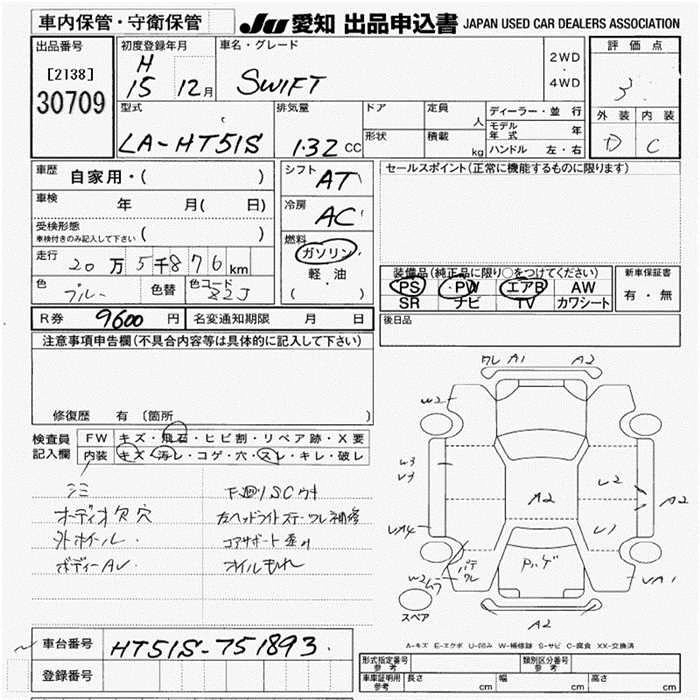 車内保管・守衛保管
JU 愛知 出品申込書 JAPAN USED CAR DEALERS ASSOCIATION
出品番号
[2138]
30709
初度登録年月
H
15 12月
車名・グレード
SWIFT
2WD
・
4WD
評価点
3
外装 内装
D C
型式
LA-HT51S
排気量
1.32 CC
ドア
定員 人
形状
積載 kg
ディーラー・並行
モデル年式 年
ハンドル 左・右
車歴 自家用・( )
車検 年 月( 日)
受検形態
車検付きのみ記入して下さい ( )
走行 20万5千876 km
色 ブルー 色替 色コード Z2J
シフト AT
冷房 AC
燃料
ガソリン
軽・油
( )
セールスポイント(正常に機能するものに限ります)
装備品(純正品に限り○をつけてください)
PS PW エアB AW
SR ナビ TV カワシート
新車保証書
有・無
R券 9600 円 名変通知期限 月 日
後日品
注意事項申告欄(不具合内容等は具体的に記入して下さい)
修復歴 有 〔箇所 〕
検査員記入欄
FW キズ・飛石・ヒビ割・リペア跡・X要
内装 キズ・汚レ・コゲ・穴・スレ・キレ・破レ
シミ
オーディオ欠穴
外ホイール
ボディーAU
左ヘッドライトステーワレ補修
コアサポート歪ミ
オイルもれ
ワレ A1 A2
W2
W3
U3
A2
U2
A2
UA4
U1
パテ
ワレ
UA1
A2
スペア
A-キズ E-エクボ U-凹み W-補修跡 S-サビ C-腐食 XX-交換済
車台番号 HT51S-751893
登録番号
形式指定番号
参考
類別区分番号
参考
車庫証明用
参考
長さ cm 幅 cm 高さ cm